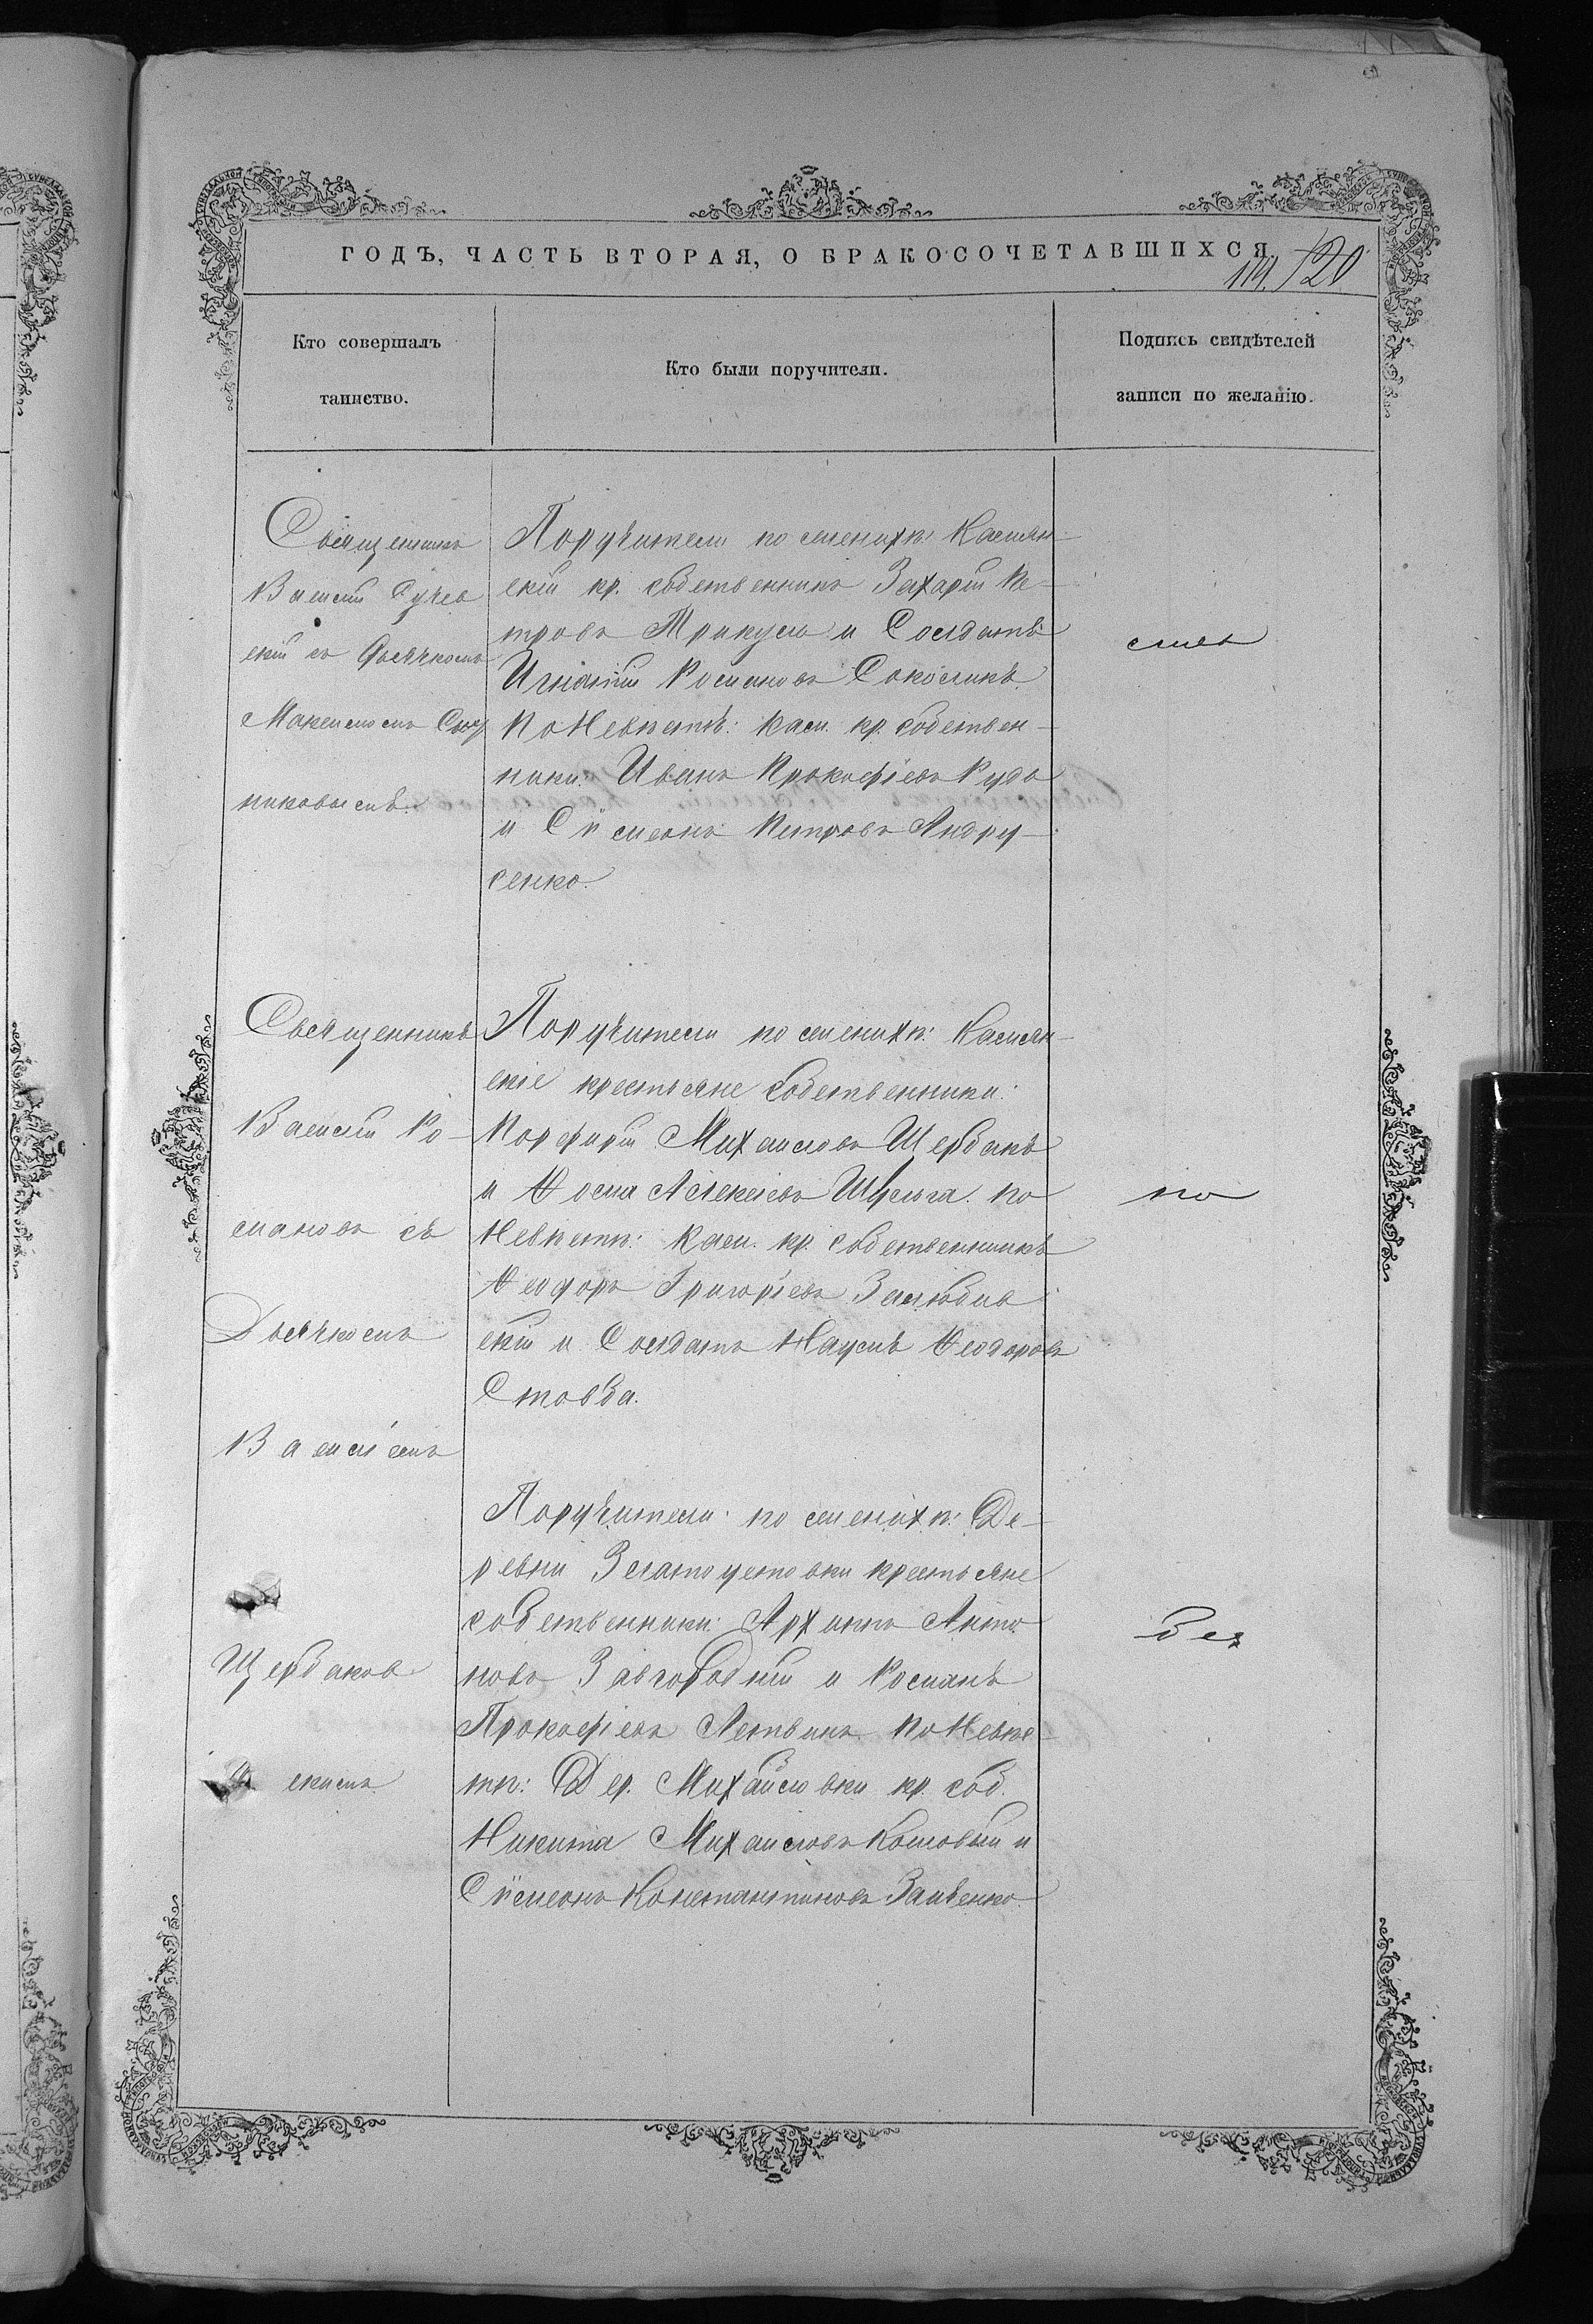 ГОДЪ, ЧАСТЬ ВТОРАЯ, О БРАКОСОЧЕТАВШИХСЯ.
119. 120
Кто совершалъ
таинство.
Кто были поручители.
Подпись свидѣтелей
записи по желанію.
Священникъ
Василій
скій съ Дьячкомъ
Максимомъ
никовымъ.
Поручители по женихѣ: Касьян-
скій кр. собственникъ Захарій Пе-
тровъ и Солдатъ
Игнатій Романовъ Соколикъ.
По Невѣстѣ: Касп. кр. собствен-
ники: Иванъ Прокофіевъ Рудь
и Сѵмеонъ Петровъ Андру-
сенко.
Священникъ
Василій Ро-
мановъ съ
Дьячкомъ
Василіемъ
Щербаков
скимъ
Поручители по женихѣ: Касьян-
скіе крестьяне собственники:
Порфирій Михаиловъ Щербакъ
и Ѳома Алексіевъ Шульга. По
Невѣстѣ: Касп. кр. собственникъ
Ѳеодоръ Григоріевъ Залюбов
скій и Солдатъ Наумъ Ѳеодоровъ
Стовба.
Поручители: по женихѣ: Де-
ревни Златоустовки крестьяне
собственники: Архиппъ Анто-
новъ Завгородній и Романъ
Прокофіевъ Летвинъ. По Невѣс-
тѣ: Дер. Михайловки кр. соб.
Никита Михаиловъ Кошовый и
Сѵмеонъ Константиновъ Заиченко.